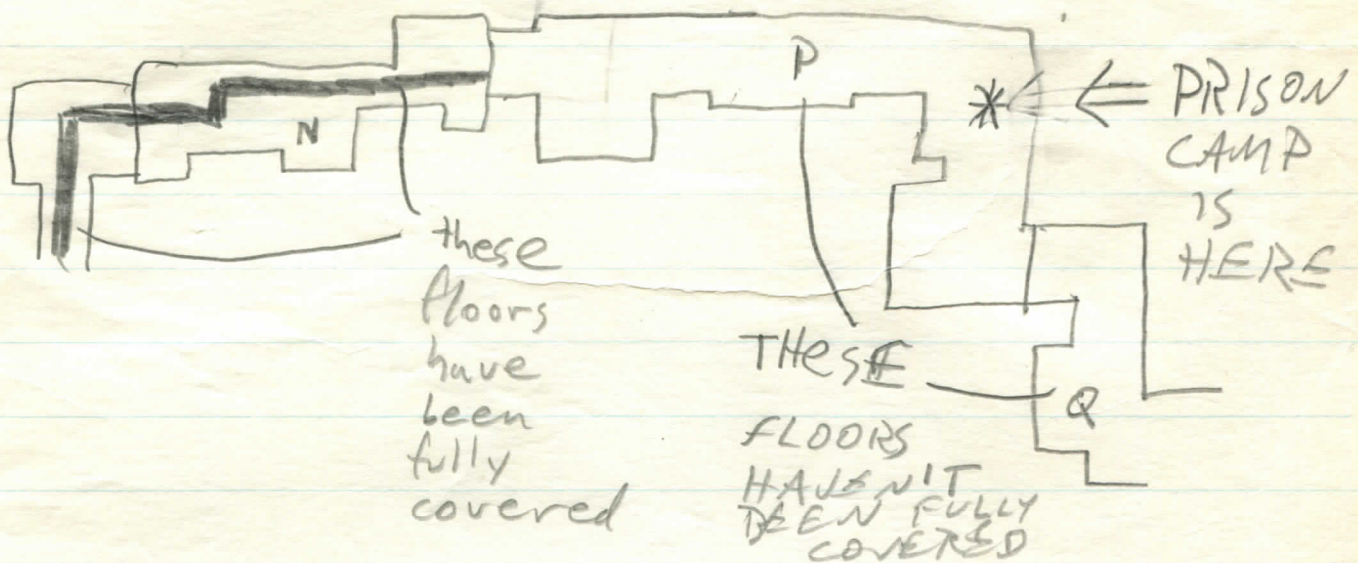 P
N
*
← PRISON
CAMP
IS
HERE
these
floors
have
been
fully
covered
THESE
FLOORS
HAVEN'T
BEEN FULLY
COVERED
Q